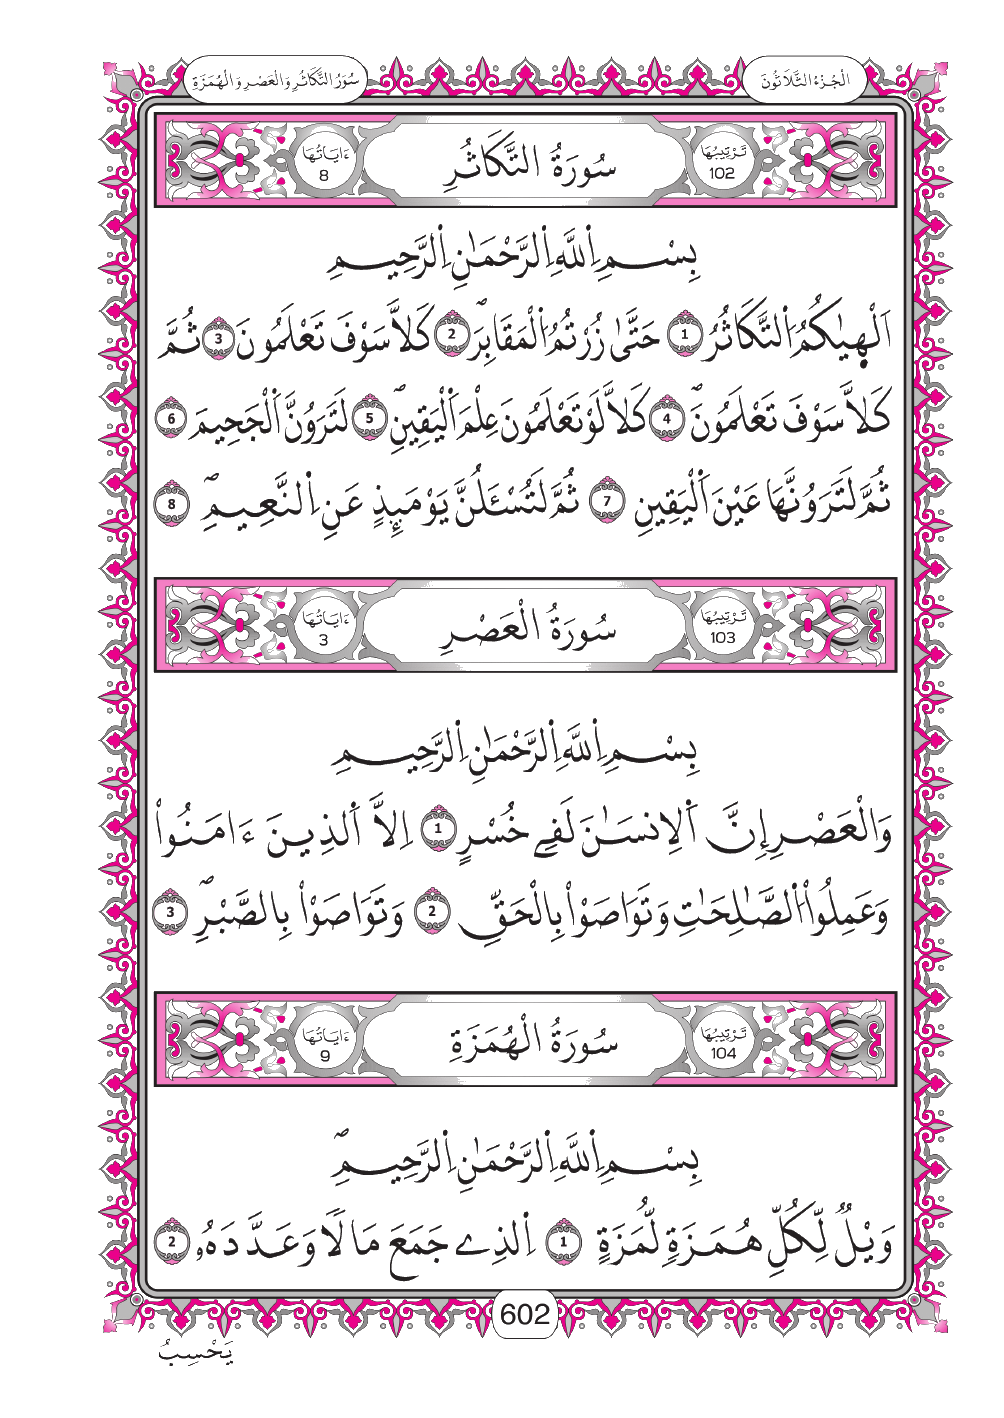 الْجُزْءُ الثَّلَاثُونَ
سُوَرُ التَّكَاثُرِ وَالْعَصْرِ وَالْهُمَزَةِ
تَرْتِيبُهَا 102
سُورَةُ التَّكَاثُرِ
ءَايَاتُهَا 8
بِسْمِ اِللَّهِ اِلرَّحْمَٰنِ اِلرَّحِيمِ
اَلْهٜيٰكُمُ اُلتَّكَاثُرُ 1 حَتَّىٰ زُرْتُمُ اُلْمَقَابِرَۖ 2 كَلاَّ سَوْفَ تَعْلَمُونَ 3 ثُمَّ
كَلاَّ سَوْفَ تَعْلَمُونَۖ 4 كَلاَّ لَوْ تَعْلَمُونَ عِلْمَ اَلْيَقِينِۖ 5 لَتَرَوُنَّ اَلْجَحِيمَ 6
ثُمَّ لَتَرَوُنَّهَا عَيْنَ اَلْيَقِينِ 7 ثُمَّ لَتُسْـَٔلُنَّ يَوْمَئِذٍ عَنِ اِلنَّعِيمِۖ 8
تَرْتِيبُهَا 103
سُورَةُ الْعَصْرِ
ءَايَاتُهَا 3
بِسْمِ اِللَّهِ اِلرَّحْمَٰنِ اِلرَّحِيمِ
وَالْعَصْرِ إِنَّ اَلِانسَٰنَ لَفِے خُسْرٍ 1 اِلاَّ اَلذِينَ ءَامَنُواْ
وَعَمِلُواْ اُلصَّٰلِحَٰتِ وَتَوَاصَوْاْ بِالْحَقِّ 2 وَتَوَاصَوْاْ بِالصَّبْرِۖ 3
تَرْتِيبُهَا 104
سُورَةُ الْهُمَزَةِ
ءَايَاتُهَا 9
بِسْمِ اِللَّهِ اِلرَّحْمَٰنِ اِلرَّحِيمِۖ
وَيْلٌ لِّكُلِّ هُمَزَةٍ لُّمَزَةٍ 1 اِلذِے جَمَعَ مَالًا وَعَدَّدَهُۥ 2
602
يَحْسِبُ